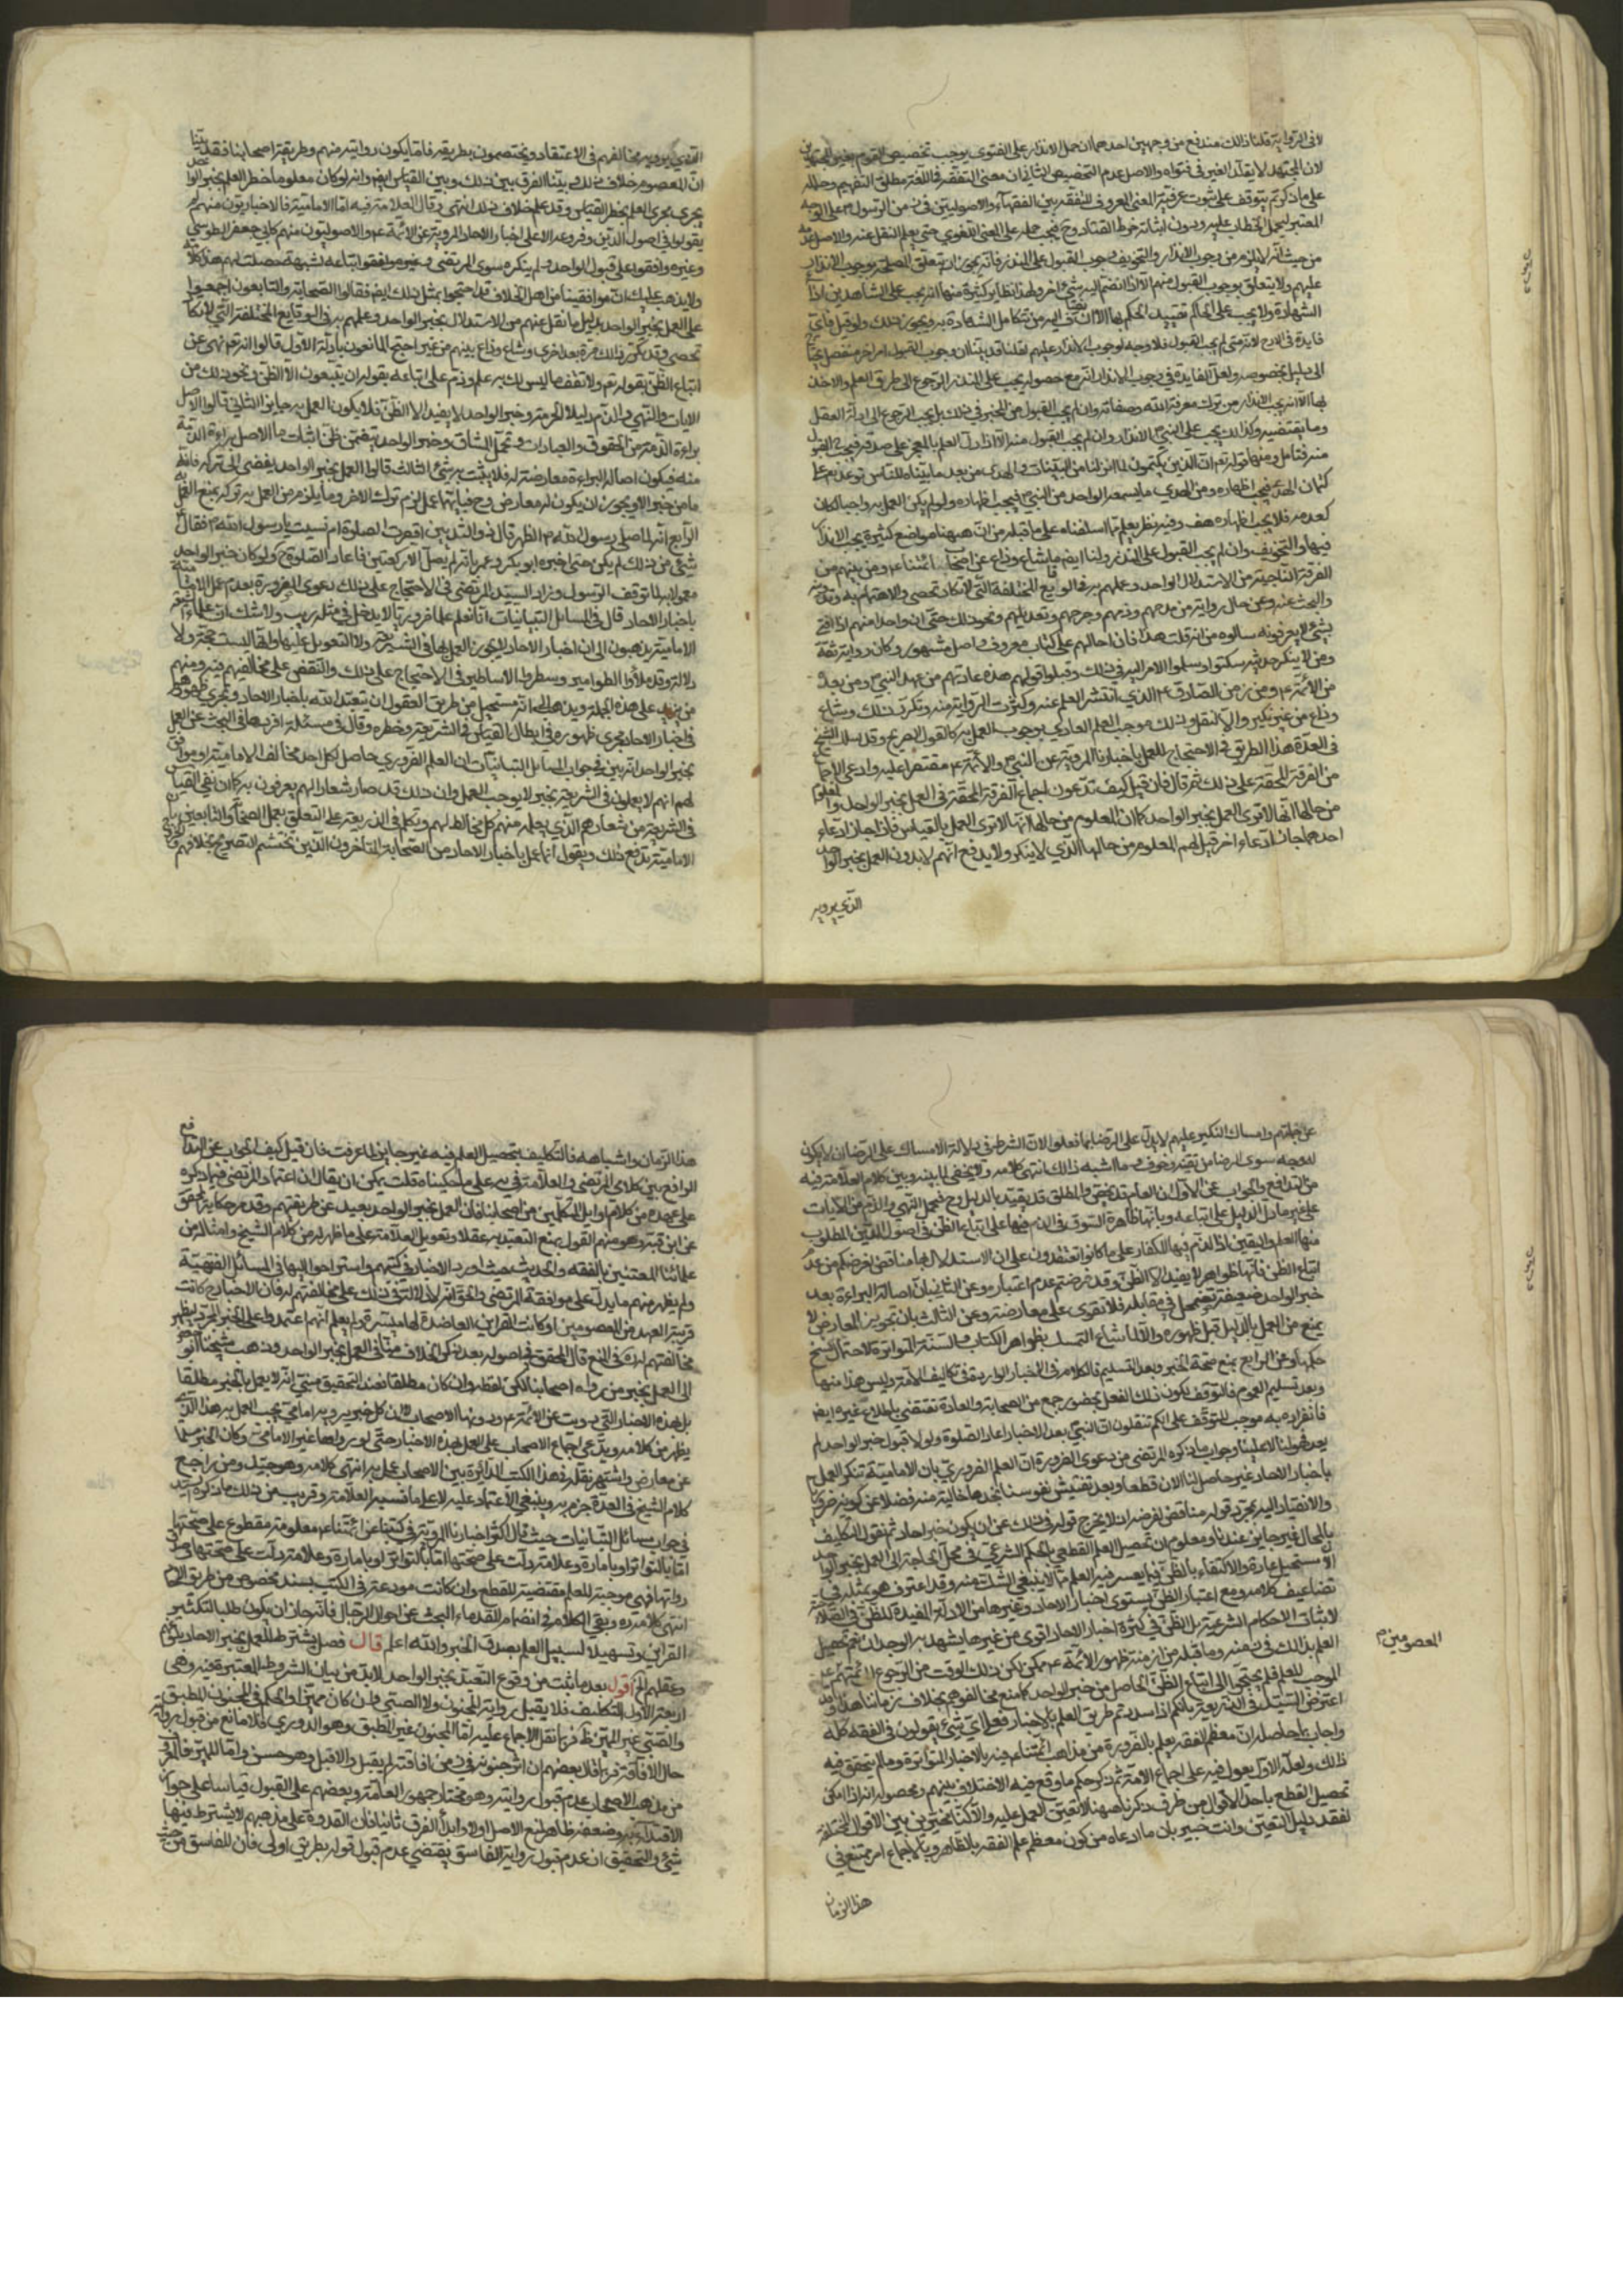 لا فى الرواية قلنا ذلك مندفع من وجهين احدهما ان حمل الانذار على الفتوى يوجب تخصيص القوم بغير المجتهدين
لان المجتهد لا يقلد الغير فى فتواه والاصل عدم التخصيص الثاني ان معنى التفقه فى اللغة مطلق التفهم وحمله
على ما ذكرتم يتوقف على ثبوت عرفية المعنى المعروف للتفقه بين الفقهاء والاصوليين في زمن الرسول ص على الوجه
المعتبر ليحمل الخطاب عليه ودون اثباته خرط القتاد وح فيجب حمله على المعنى اللغوي حتى يعلم النقل عنه والاصل عدمه
من حيث انه لا يلزم من وجوب الانذار والتخويف وجوب القبول على المنذر فانه يجوز ان يتعلق المصلحة بوجوب الانذار
عليهم ولا يتعلق بوجوب القبول منهم الا اذا انضم اليه شئ اخر ولهذا نظاير كثيرة منها انه يجب على الشاهدين اداء
الشهادة ولا يجب على الحاكم تنفيذ الحكم بها الا ان يضاف اليه من تتكامل الشهادة به ويجوز ذلك ولو قيل فاي
فايدة فى الانذار لانه متى لم يجب القبول فلا وجه لوجوب الانذار عليهم لقلنا قد بينا ان وجوب القبول امر اخر منفصل يحتاج
الى دليل بخصوصه ولعل الفايدة فى وجوب الانذار انه مع حصوله يجب على المنذر الرجوع الى طرق العلم والاخذ
بها الا انه يجب الانذار من ترك معرفة الله وصفاته وان لم يجب القبول من المخبر في ذلك بل يجب الرجوع الى ادلة العقل
وما يقتضيه وكذلك يجب على النبي ص الانذار وان لم يجب القبول منه الا اذا دل العلم بالمعجز على صدقه فيجب القبول
منه فتامل ومنها قوله تعم ان الذين يكتمون ما انزلنا من البينات والهدى من بعد ما بيناه للناس توعد تعم على
كتمان الهدى فيجب اظهاره ومن الهدى ما يسمعه الواحد من النبي ص فيجب اظهاره ولو لم يكن العمل به واجبا لكان
كعدمه فلا يجب اظهاره هف وفيه نظر يعلم مما اسلفناه على ما قبله من ان ههنا مواضع كثيرة يجب الانذار
فيها والتخويف وان لم يجب القبول على المنذر ولنا ايضا ما شاع وذاع عن اصحاب ائمتنا ع ومن بينهم من
الفرقة الناجية من الاستدلال بالواحد وعملهم به فى الوقايع المختلفة التي لا تكاد تحصى والاهتمام به وتدوينه
والبحث عنه وعن حال رواته من مدحهم وذمهم وجرحهم وتعديلهم ونحو ذلك حتى ان واحدا منهم اذا افتى
بشئ لا يعرفونه سالوه من اين قلت هذا فان احالهم على كتاب معروف واصل مشهور وكان رواته ثقة
ومن لا ينكر حديثه سكتوا وسلموا الامر اليه في ذلك وقبلوا قوله هذه عادتهم من عهد النبي ص ومن بعده
من الائمة ع ومن زمن الصادق ع الذي انتشر العلم عنه وكثرت الرواية منه وتكرر ذلك وشاع
وذاع من غير نكير والا لنقل وذلك موجب العلم العادي بوجوب العمل به كالقول الصريح وقد سلك الشيخ
فى العدة هذا الطريق فى الاحتجاج للعمل باخبارنا المروية عن النبي ص والائمة ع مقتصرا عليه وادعى الاجماع
من الفرقة المحقة على ذلك ثم قال فان قيل كيف تدعون اجماع الفرقة المحقة فى العمل بخبر الواحد والمعلوم
من حالها انها لا ترى العمل بخبر الواحد كما ان المعلوم من حالها انها لا ترى العمل بالقياس فان جاز ادعاء
احدهما جاز ادعاء اخر قيل لهم المعلوم من حالها الذي لا ينكر ولا يدفع انهم لا يرون العمل بخبر الواحد
الذي يرويه
الذي يرويه مخالفهم فى الاعتقاد ويختصمون بطريقه فاما ما يكون رواته منهم وطريقه اصحابنا فقد بينا
ان المعصوم خلاف ذلك وبينا الفرق بين ذلك وبين القياس ايضا وانه لو كان معلوما حظر العلم بخبر الواحد
يجرى مجرى العلم بحظر القياس وقد علم خلاف ذلك انتهى وقال العلامة ره فيه اما الامامية فالاخباريون منهم لم
يعولوا فى اصول الدين وفروعه الا على اخبار الاحاد المروية عن الائمة ع والاصوليون منهم كابي جعفر الطوسي
وغيره وافقوا على قبول الواحد ولم ينكره سوى المرتضى وغيره وافقوا اتباعه لشبهة حصلت لهم هذا كلامه
ولا يذهب عليك ان موافقينا من اهل الخلاف قد احتجوا بمثل ذلك ايضا فقالوا الصحابة والتابعون اجمعوا
على العمل بخبر الواحد بدليل ما نقل عنهم من الاستدلال بخبر الواحد وعملهم به فى الوقايع المختلفة التي لا تكاد
تحصى وقد تكرر ذلك مرة بعد اخرى وشاع وذاع بينهم من غير احتج المانعون بادلة الاول قالوا انه تعم نهى عن
اتباع الظن بقوله تعم ولا تقف ما ليس لك به علم وذم على اتباعه بقوله ان يتبعون الا الظن ونحو ذلك من
الايات والنهي والذم دليلا الحرمة وخبر الواحد لا يفيد الا الظن فلا يكون العمل به جايزا الثاني قالوا الاصل
براءة الذمة من الحقوق والعبادات وتحمل المشاق وخبر الواحد يتضمن ظن اثبات ما الاصل براءة الذمة
منه فيكون اصالة البراءة معارضة له فلا يثبت به شئ الثالث قالوا العمل بخبر الواحد يفضى الى تركه فانه
ما من خبر الا ويجوز ان يكون له معارض وح فبايهما عمل لزم ترك الاخر وما يلزم من العمل به تركه يمنع العمل
الرابع انه لما صلى رسول الله ص الظهر قال ذو اليدين اقصرت الصلوة ام نسيت يا رسول الله ص فقال
شئ من ذلك لم يكن حتى اخبره ابو بكر وعمر بانه لم يصل الا ركعتين فاعاد الصلوة ح ولو كان خبر الواحد
معمولا به لما توقف الرسول وزاد السيد المرتضى فى الاحتجاج على ذلك دعوى الضرورة بعدم عمل الامامية
باخبار الاحاد قال فى المسائل التبانيات انا نعلم علما ضروريا لا يدخل فى مثله ريب ولا شك ان علماء الشيعة
الامامية يذهبون الى ان اخبار الاحاد لا يجوز العمل بها فى الشريعة ولا التعويل عليها وانها ليست بحجة ولا
دلالة وقد ملأوا الطوامير وسطروا الاساطير فى الاحتجاج على ذلك والنقض على مخالفيهم فيه ومنهم
من يزيد على هذه الجملة ويذهب الى انه مستحيل من طريق العقول ان يتعبد الله باخبار الاحاد ويجرى ظهور مذهبهم
فى اخبار الاحاد مجرى ظهوره فى ابطال القياس فى الشريعة وحظره وقال فى مسئلة افردها فى البحث عن العمل
بخبر الواحد انه بين فى جواب المسايل التبانيات ان العلم الضروري حاصل لكل احد مخالف الامامية او موافق
لهم انهم لا يعملون فى الشريعة بخبر لا يوجب العمل وان ذلك قد صار شعارا لهم يعرفون به كما ان نفي القياس
فى الشريعة من شعارهم الذي يعلمه منهم كل مخالط لهم وتكلم فى الذريعة على التعلق بعمل الصحابة والتابعين بان
الامامية تدفع ذلك ويقول انما عمل باخبار الاحاد من الصحابة المتأخرون الذين تحتشم التصريح بخلافهم والخروج
عن جملتهم وامساك النكير عليهم لا يدل على الرضا بما فعلوا لان الشرط فى دلالة الامساك على الرضا ان لا يكون
له وجه سوى الرضا من تقية وخوف وما اشبه ذلك انتهى كلامه ولا يخفى ما بينه وبين كلام العلامة فيه
من التدافع والجواب عن الاول ان العام قد يخص والمطلق قد يقيد بالدليل وح فيحمل النهي والذم من الايات
على غير ما دل الدليل على اتباعه وبانها ظاهرة السوق فى الذم فيها على اتباع الظن فى اصول الدين المطلوب
منها العلم واليقين اذ الذم فيها للكفار على ما كانوا يعتقدون على ان الاستدلال بها مناقض لغرضكم من عدم
اتباع الظن فانها ظواهر لا يفيد الا الظن وقد فرضتم عدم اعتباره وعن الثاني بان اصالة البراءة بعد
خبر الواحد ضعيفة يضمحل فى مقابله فلا تقوى على معارضته وعن الثالث بان تجويز المعارض لا
يمنع من العمل بالدليل قبل ظهوره والا لما شاع التمسك بظواهر الكتاب والسنة المتواترة لاحتمال نسخ
حكمها وعن الرابع بمنع صحة الخبر وبعد التسليم فالكلام فى الاخبار الواردة فى تكاليف الامة وليس هذا منها
وبعد تسليم العموم فالتوقف بكون ذلك الفعل بحضور جمع من الصحابة والعادة تقتضي باطلاع غيره ايضا
فانفراده به موجب للتوقف على انكم تنقلون ان النبي ص بعد الاخبار اعاد الصلوة ولولا قبول خبر الواحد لم
يعد فهو لنا لا علينا وجواب ما ذكره المرتضى من دعوى الضرورة ان العلم الضروري بان الامامية تنكر العمل
باخبار الاحاد غير حاصل لنا الان قطعا وبعد تفتيش نفوسنا نجدها خالية منه فضلا عن كونه ضروريا
والانقياد اليه بمجرد قوله مناقض لغرضه اذ لا يخرج قوله فى ذلك عن ان يكون خبر احاد ثم نقول التكليف
بالمحال غير جايز عندنا ومعلوم ان تحصيل العلم القطعي بالحكم الشرعي فى محل الحاجة الى العمل بخبر الواحد
الان مستحيل عادة والاكتفاء بالظن فيما يعسر فيه العلم مما لا ينبغي الشك فيه وقد اعترف هو بمثله فى
تضاعيف كلامه ومع اعتبار الظن يستوى اخبار الاحاد وغيرها من الادلة المفيدة للظن فى الصلاحية
لاثبات الاحكام الشرعية بل الظن فى كثرة اخبار الاحاد اقوى من غيرها يشهد به الوجدان نعم تحصيل
العلم بذلك فى زمنه وما قبله من ازمنة ظهور الائمة ع ممكن لكن ذلك الوقت من الرجوع الى ائمتهم
المعصومين ع
الموجب للعلم فلم يحتج الى اتباع الظن الحاصل من خبر الواحد كما صنع مخالفوهم بخلاف زماننا هذا وقد
اعترض السيد فى الذريعة بانكم اذا سددتم طريق العلم بالاخبار فعلى اي شئ تعولون فى الفقه كله
واجاب بما حاصله ان معظم الفقه يعلم بالضرورة من مذاهب ائمتنا ع فيه بالاخبار المتواترة وما لم يتحقق فيه
ذلك ولعله الاول يعول فيه على اجماع الامة ثم ذكر حكم ما وقع فيه الاختلاف بينهم ومحصوله انه اذا امكن
تحصيل القطع باحد الاقوال من طرق ذكرناها ههنا لا تعين العمل عليه والا كنا مخيرين بين الاقوال المختلفة
لفقد دليل التعيين وانت خبير بان ما ادعاه من كون معظم علم الفقه بالظاهر وبالاجماع امر ممتنع فى
هذا الزمان
هذا الزمان واشباهه فالتكليف بتحصيل العلم فيه غير جايز لما عرفت فان قيل كيف الجواب عن التدافع
الواقع بين كلامي المرتضى والعلامة فى يه على ما حكيناه قلت يمكن ان يقال ان اعتماد المرتضى فيما ذكره
على عهده من كلام اوايل المتكلمين من اصحابنا فان العمل بخبر الواحد بعيد عن طريقتهم وقد مر حكاية المحقق
عن ابن قبة وهو منهم القول بمنع التعبد به عقلا وتعويل العلامة على ما ظهر له من كلام الشيخ وامثاله من
علمائنا المعتنين بالفقه والحديث حيث اوردوا الاخبار فى كتبهم واستراحوا اليها فى المسائل الفقهية
ولم يظهر منهم ما يدل على موافقة المرتضى والحق انه لا دلالة فى ذلك على مخالفتهم له فان الاخبار ح كانت
قريبة العهد من المعصومين او كانت القراين العاضدة لها ميسرة ولم يعلم انهم اعتمدوا على الخبر المجرد ليظهر
مخالفتهم له فى المنع قال المحقق فى اصوله بعد ذكره الخلاف منا فى العمل بخبر الواحد وذهب شيخنا ابو جعفر
الى العمل بخبر من رواه اصحابنا لكن لفظه وان كان مطلقا فعند التحقيق مبني انه لا يعمل بالخبر مطلقا
بل بهذه الاخبار التي رويت عن الائمة ع ودونها الاصحاب لا ان كل خبر يرويه امامي يجب العمل به هذا الذي
يظهر من كلامه ويدعي اجماع الاصحاب على العمل بهذه الاخبار حتى لو رواها غير الامامي وكان الخبر سليما
عن معارض واشتهر نقله فى هذا الكتب الدائرة بين الاصحاب عمل به انتهى كلامه وهو جيد ومن راجع
كلام الشيخ فى العدة جزم به وينبغي الاعتماد عليه لا على ما نسبه العلامة وقريب من ذلك ما ذكره السيد
في جواب مسائل التبانيات حيث قال اكثر اخبارنا المروية فى كتبنا عن ائمتنا ع معلومة مقطوع على صحتها
اما بالتواتر او بامارة وعلامة دلت على صحتها اما بالتواتر او بامارة وعلامة دلت على صحتها وصدق
رواتها فهي موجبة للعلم مقتضية للقطع وان كانت مودعة فى الكتب بسند مخصوص من طريق الاحاد
انتهى كلامه ره وبقي الكلام فى انضمام القدماء البحث عن احوال الرجال فانه جاز ان يكون طلب التكثير
القراين وتسهيلا لسبيل العلم بصدق الخبر والله اعلم قال فصل يشترط للعمل بخبر الاحاد بلوغ
وعقلهم الخ اقول بعد ما ثبت من وقوع التعبد بخبر الواحد لا بد من بيان الشروط المعتبرة فيه وهى
اربعة الاول التكليف فلا يقبل رواية المجنون ولا الصبي وان كان مميزا والحكم فى المجنون المطبق
والصبي غير المميز ظ فربما نقل الاجماع عليه اما المجنون غير المطبق وهو الدوري فلا مانع من قبول روايته
حال الافاقة فربما قال بعضهم ان اثر جنونه فى زمن افاقته لم يقبل والا قبل وهو حسن واما المميز فالمعروف
من مذهب الاصحاب عدم قبول روايته وهو مختار جمهور العامة وبعضهم على القبول قياسا على جواز
الاقتداء به وضعفه ظاهر لمنع الاصل اولا وابداء الفرق ثانيا فان القدوة على مذهبهم لا يشترط فيها
شئ والتحقيق ان عدم قبول رواية الفاسق يقتضي عدم قبول قوله بطريق اولى فان للفاسق من حيث